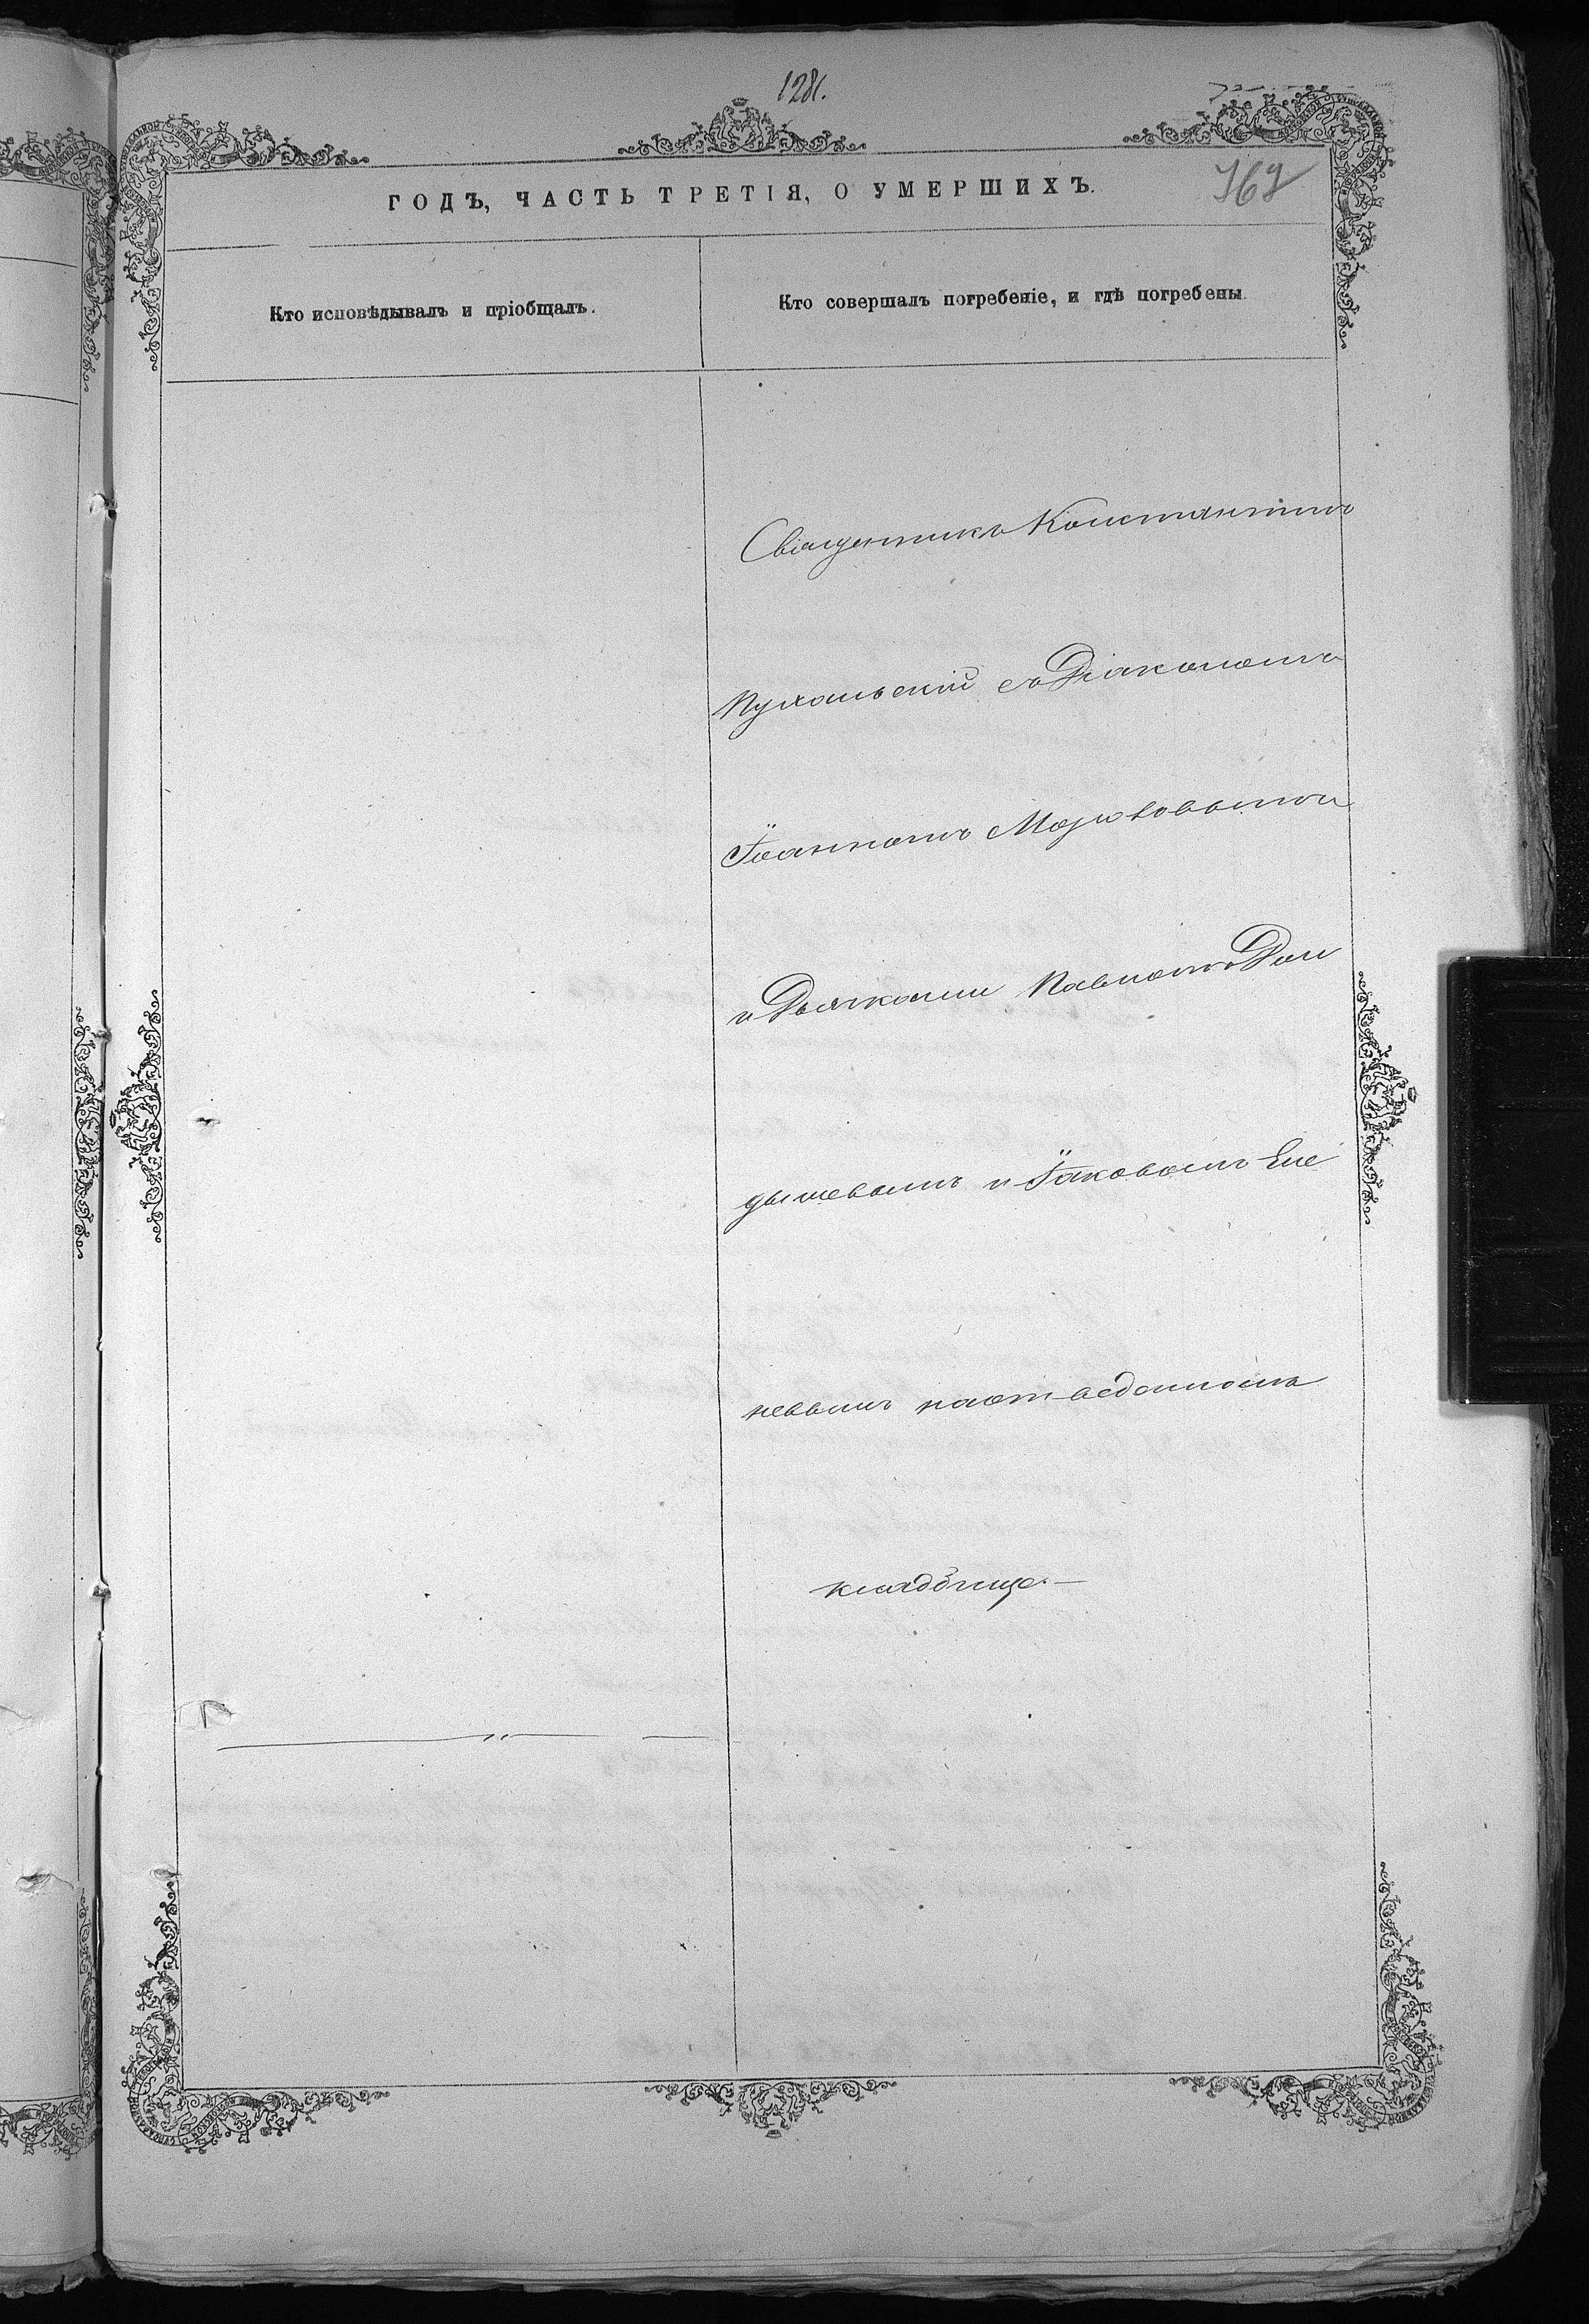 1281.
769
ГОДЪ, ЧАСТЬ ТРЕТІЯ, О УМЕРШИХЪ.
Кто исповѣдывалъ и пріобщалъ.
Кто совершалъ погребеніе, и гдѣ погребены.
Священникъ Константинъ
Пухальскій съ Діакономъ
Іоанномъ
и Дьячками Павломъ Дол
дышевымъ и Іаковомъ Ене
невымъ на
кладбище.—